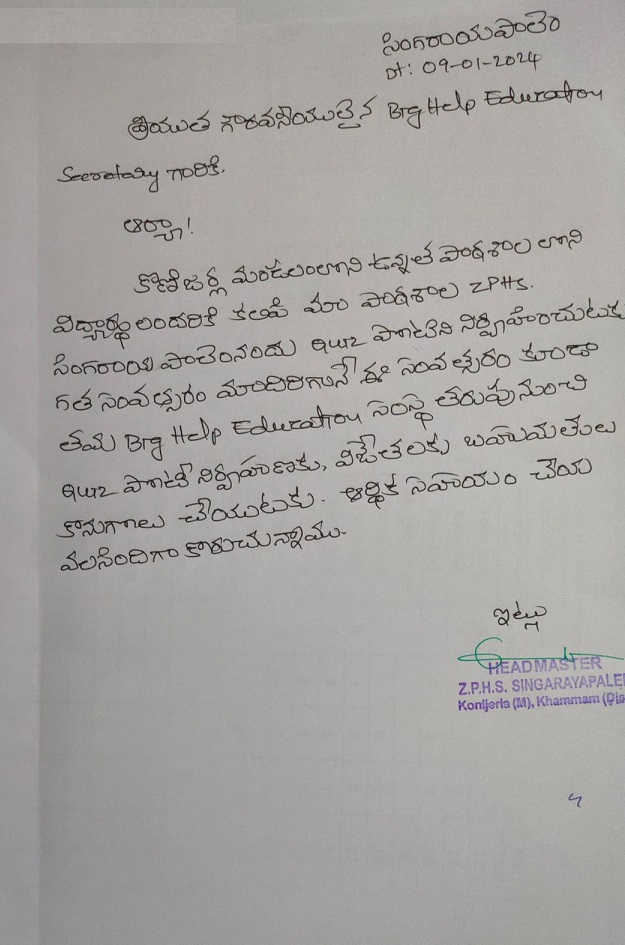 సింగరాయపాలెం
Dt: 09-01-2024
శ్రీయుత గౌరవనీయులైన Big Help Education
Secretary గారికి.
ఆర్యా!
కొణిజర్ల మండలంలోని ఉన్నత పాఠశాల లోని
విద్యార్థులందరికి కలిపి మా పాఠశాల ZPHS.
సింగరాయ పాలెంనందు Quiz పోటీని నిర్వహించుటకు
గత సంవత్సరం మాదిరిగానే ఈ సంవత్సరం కూడా
తమ Big Help Education సంస్థ తరుపునుంచి
Quiz పోటీ నిర్వహణకు, విజేతలకు బహుమతులు
కొనుగోలు చేయుటకు. ఆర్థిక సహాయం చేయ
వలసిందిగా కోరుచున్నాము.
ఇట్లు
HEADMASTER
Z.P.H.S. SINGARAYAPALE
Konijerla (M), Khammam (Dis